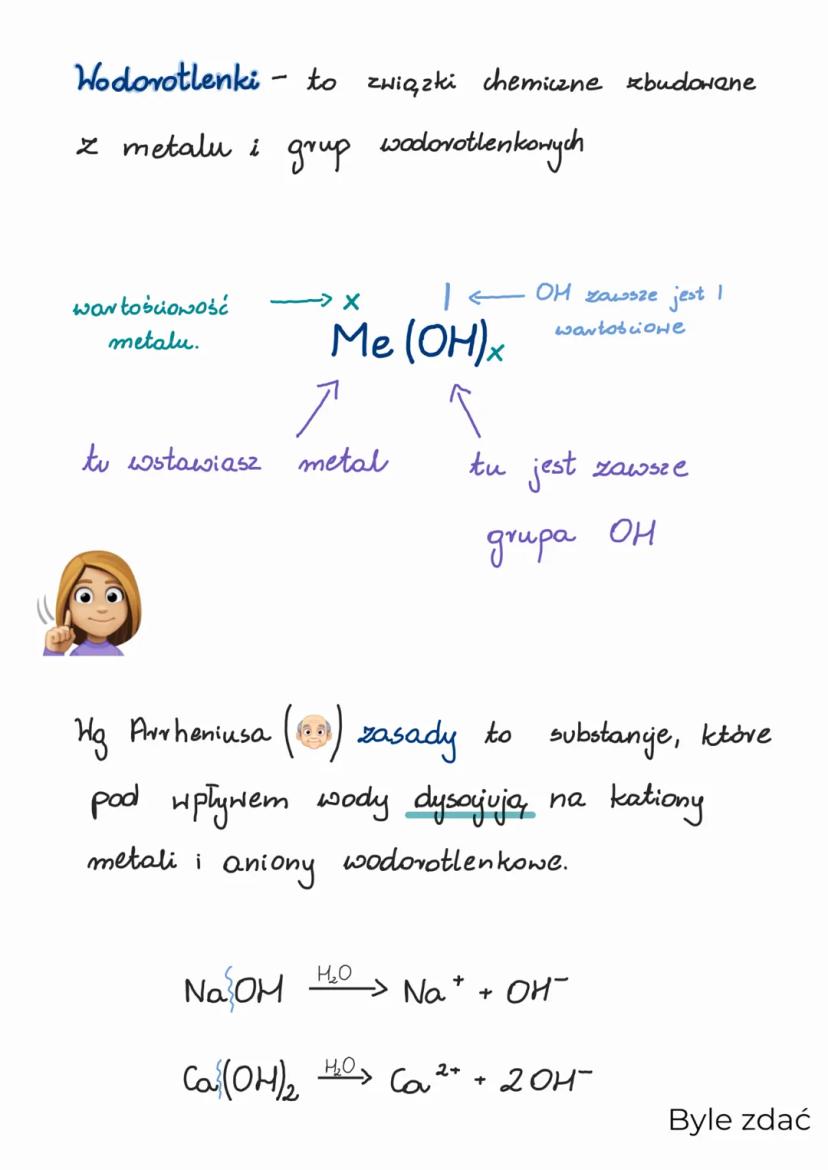 Wodorotlenki - to związki chemiczne zbudowane
z metalu i grup wodorotlenkowych
wartościowość metalu.
→ x
I ← OH zawsze jest I wartościowe
Me(OH)x
tu wstawiasz metal
tu jest zawsze
grupa OH
Wg Arrheniusa ( ) zasady to substancje, które
pod wpływem wody dysocjują na kationy
metali i aniony wodorotlenkowe.
NaOH H₂O → Na⁺ + OH⁻
Ca(OH)₂ H₂O → Ca²⁺ + 2OH⁻
Byle zdać